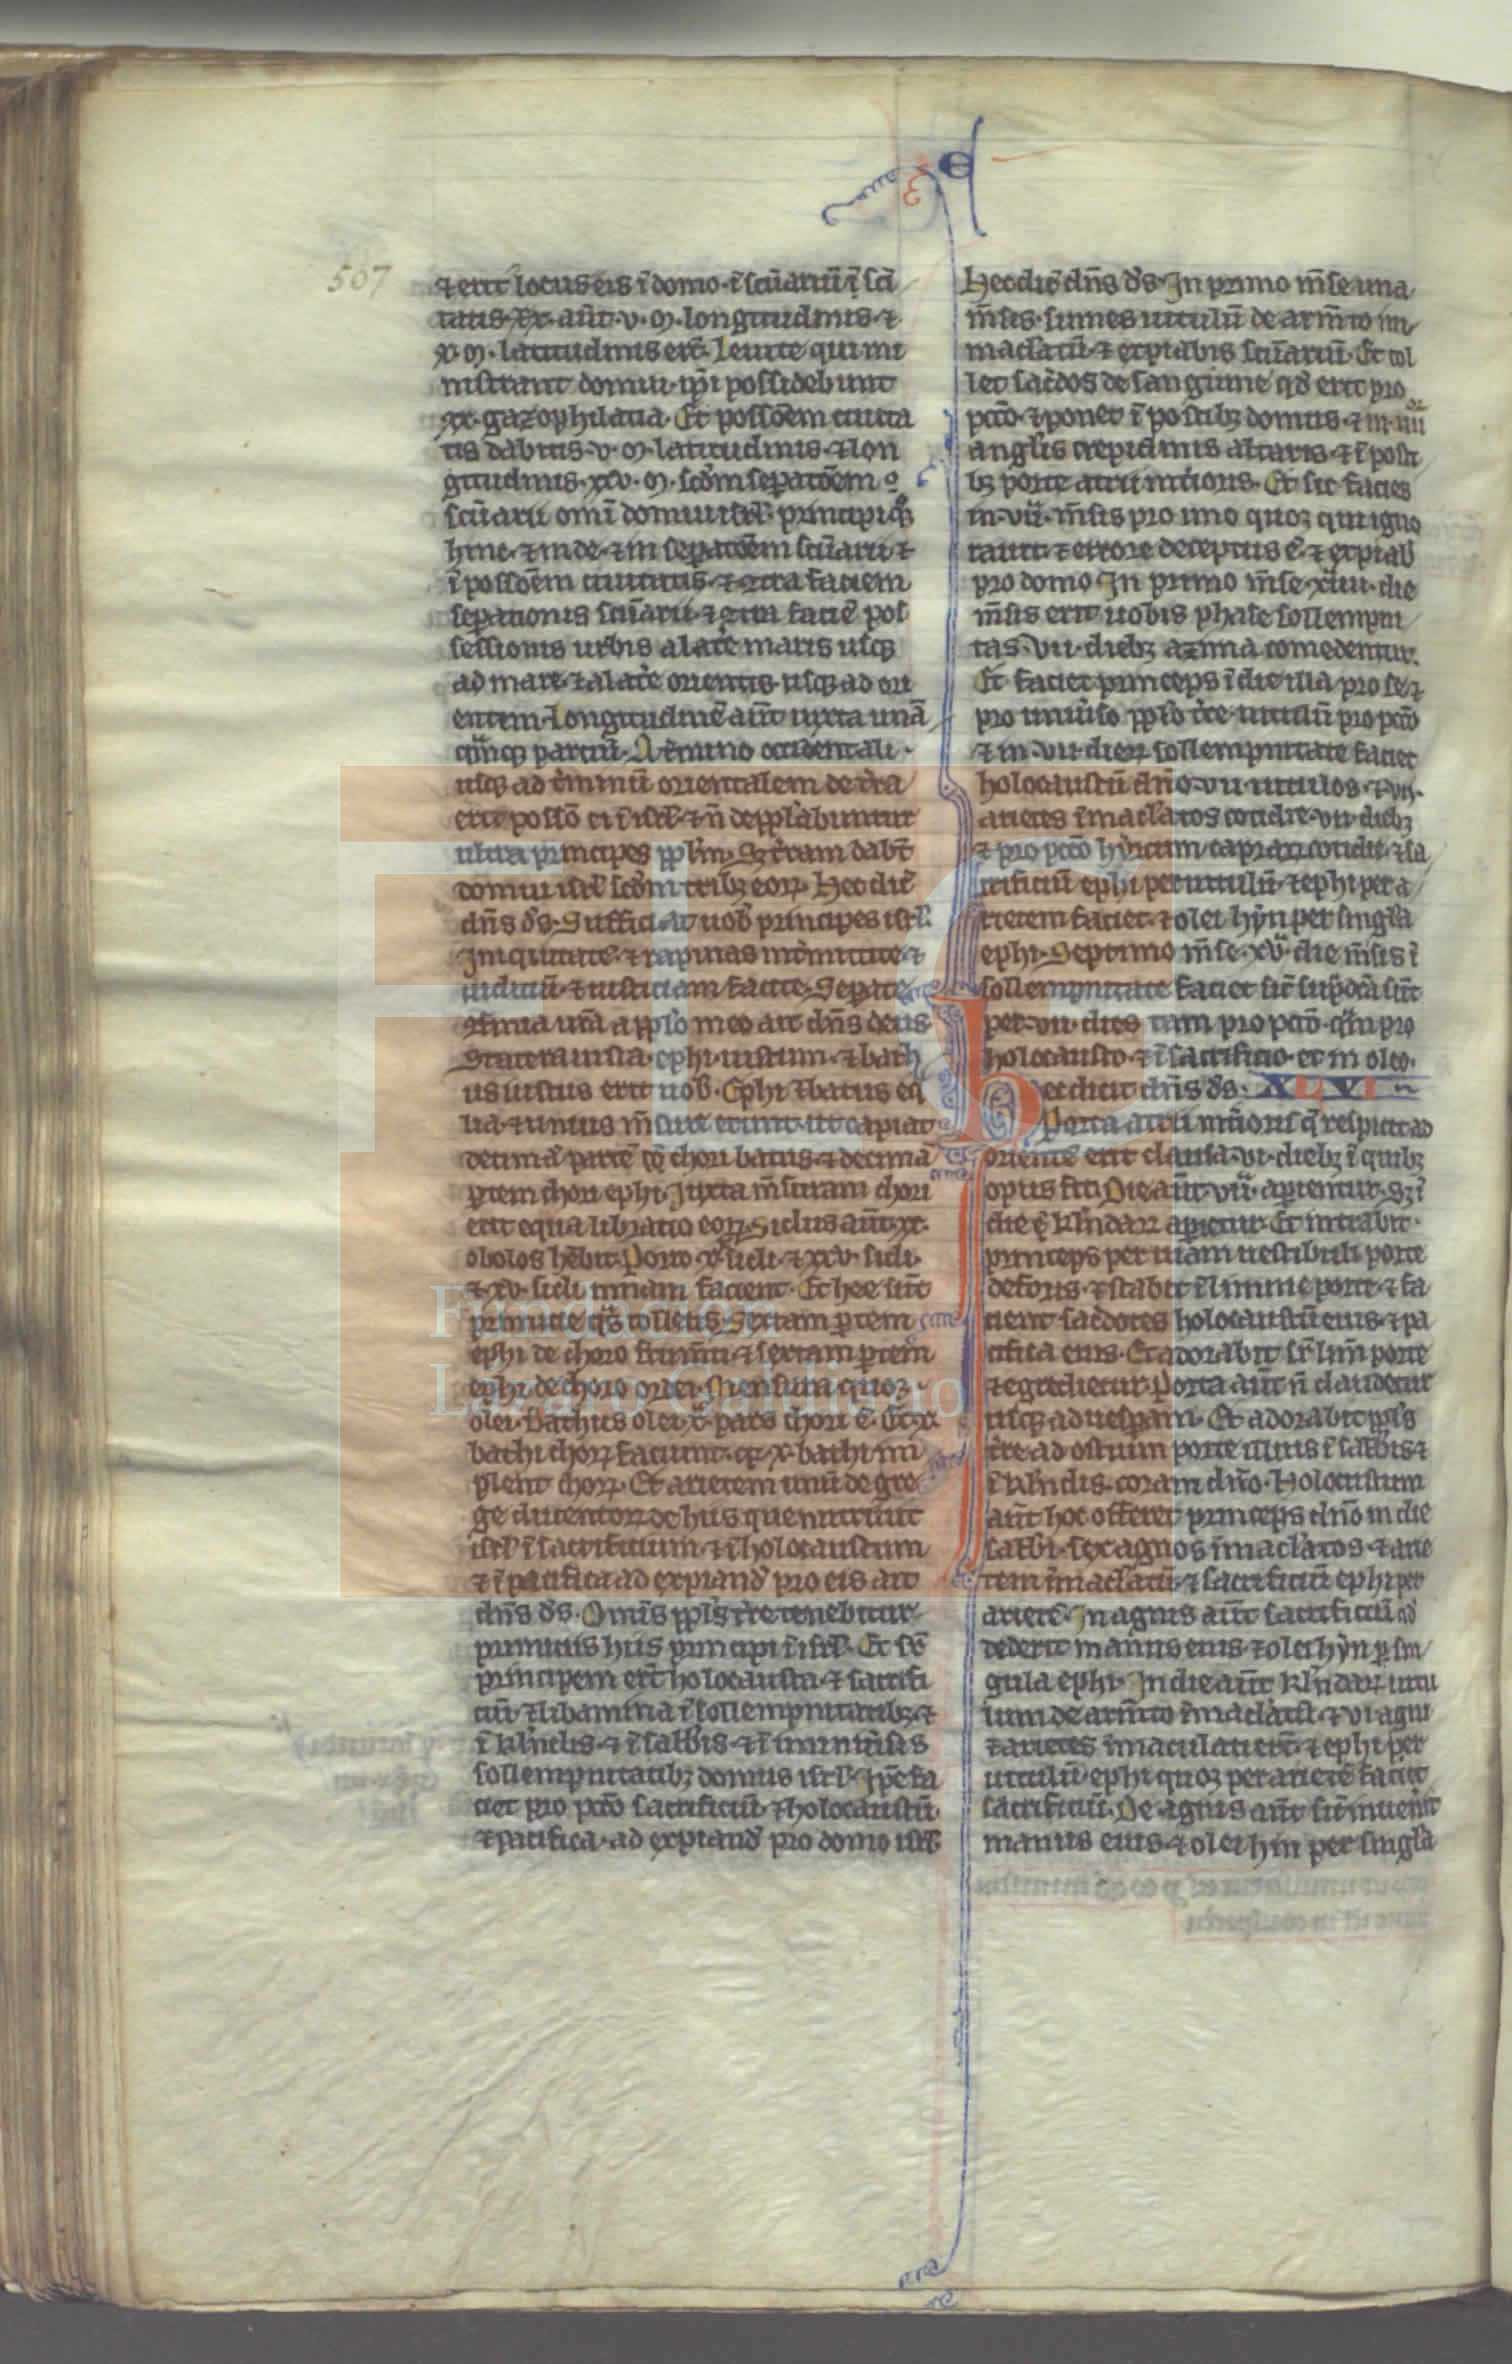 E
507
⁊ erit locus eis ī domo· ī sc̄uariū ī sc̄i
tatis xx· aūt· v· m̄· longitudinis ⁊
x· m̄· latitudinis erit· Leuite qui mi
nistrant domui ip̄i possidebunt
xx· gazophilatia· Et poss̄oēm ciuita
tis dabitis· v· m̄· latitudinis· ⁊ lon
gitudinis· xxv· m̄· scd̄m sepatōem
sc̄uarii omī domui isrl̄· principi qꝫ
hinc· ⁊ inde· ⁊ in sepatōem sc̄uarii ⁊
ī poss̄oēm ciuitatis· ⁊ ꝯtra faciem
sepationis sc̄uarii· ⁊ ꝯtra faciē pos
sessionis urbis a lat̄e maris usqꝫ
ad mare· ⁊ a lat̄e orientis· usqꝫ ad ori
entem· Longitudinē aūt iuxta unā
q̄mqꝫ partiū· A t̄mino occidentali·
usqꝫ ad t̄minū orientalem de t̄ra
erit poss̄o ei ī isrl̄· ⁊ n̄ depp̄labuntur
ultra principes pp̄lm̄· Sꝫ t̄ram dabt̄
domui isrl̄ scd̄m tribꝫ eoꝝ· Hec dic̄
dn̄s ds̄· Sufficiat uob̄ principes isrl̄
Iniquitatē· ⁊ rapinas int̄mittite ⁊
iudiciū· ⁊ iusticiam facite· Separate
ꝯfinia ur̄a a pp̄lo meo ait dn̄s deus
Statera iusta· ephi· iustum· ⁊ bath
us iustus erit uob̄· Ephi ⁊ batus eq̄
lia· ⁊ unius m̄sure erunt· ut capiat
decimā partē chori batus· ⁊ decimā
ꝑtem chori ephi· Iuxta m̄suram chori
erit equa libratio eoꝝ· Siclus aūt· xx·
obolos hēbit· Porro· xx· sicli· ⁊ xxv· sicli·
⁊ xv· sicli mnam facient· Et hee sūt
primicie q̄s tolletis· Sextam ꝑtem
ephi de choro frum̄ti· ⁊ sextam ꝑtem
ephi· de choro ordei· Mensura quoꝫ
olei· Bathus olei· x̄· pars chori ē· Et x
bathi choꝝ faciunt· qꝛ x· bathi im
plent choꝝ· Et arietem unū de gre
ge ducentoꝝ de hiis que nutriunt
isrl̄ ī sacrificium· ⁊ ī holocaustum
⁊ ī pacifica ad expiand̄ pro eis ait
dn̄s ds̄· Omīs pp̄ls t̄re tenebitur
primiciis hiis principi ī isrl̄· Et sup̄
principem erūt holocausta· ⁊ sacrifi
ciū· ⁊ libamina ī sollempnitatibꝫ· ⁊
ī kl̄ndis· ⁊ ī sabb̄is· ⁊ ī uniuersis
sollempnitatibꝫ domus isrl̄· Ip̄e fa
ciet pro pcc̄o sacrificiū· ⁊ holocaustū
⁊ pacifica· ad expiand̄ pro domo isrl̄
Hec dic̄ dn̄s ds̄· In primo m̄se una
m̄sis· sumes uitulū de arm̄to im
maclatū· ⁊ expiabis sc̄uariū· Et tol
let sac̄dos de sanguine qd̄ erit pro
pcc̄o· ⁊ ponet ī postibꝫ domus· ⁊ in iiii
anglis crepidinis altaris· ⁊ ī posti
bꝫ porte atrii int̄ioris· Et sic facies
in· vii· m̄sis pro uno quoꝫ qui igno
rauit· ⁊ errore deceptus ē· ⁊ expiab̄
pro domo· In primo m̄se· xiiii· die
m̄sis erit uobis phase sollempni
tas· Vii· diebꝫ azima comedentur·
Et faciet princeps ī die illa pro se ⁊
pro uniuso pp̄lo t̄re· uitulū pro pcc̄o
⁊ in· vii· dieꝝ sollempnitate faciet
holocaustū dn̄o· vii· uitulos· ⁊ vii·
arietes īmaclatos cotidie· vii· diebꝫ
⁊ pro pcc̄o hyrcum capraꝝ cotidie· ⁊ sa
crificiū ephi per uitulū· ⁊ ephi per a
rietem faciet· ⁊ olei hyn per singla
ephi· Septimo m̄se· xv· die m̄sis ī
sollempnitate faciet sic̄ sup̄dc̄a sūt
per· vii· dies tam pro pcc̄o· q̄m pro
holocausto· ⁊ ī sacrificio· et in oleo·
Hec dicit dn̄s ds̄· XLVI
Porta atrii int̄ioris q̄ respicit ad
orientē erit clausa· vi· diebꝫ ī quibꝫ
opus fit· Die aūt· vii· aperientur· sꝫ ī
die kl̄ndaꝝ aperietur· Et intrabit
princeps per uiam uestibuli porte
deforis· ⁊ stabit ī limine porte· ⁊ fa
cient sac̄dotes holocaustū eius· ⁊ pa
cifica eius· Et adorabit sup̄ lim̄ porte
⁊ egredietur· Porta aūt n̄ claudetur
usqꝫ ad uesꝑam· Et adorabit pp̄ls
t̄re ad ostium porte illius ī sabb̄is· ⁊
ī kl̄ndis· coram dn̄o· Holocaustum
aūt hoc offeret princeps dn̄o in die
sabb̄i· sex agnos īmaclatos· ⁊ arie
tem īmaclatū· ⁊ sacrificiū ephi per
arietē· In agnis aūt sacrificiū qd̄
dederit manus eius· ⁊ olei hyn ꝑ sin
gula ephi· In die aūt kl̄ndaꝝ uitu
lum de arm̄to īmaclatū· ⁊ vi agni
⁊ arietes īmaculati erūt· ⁊ ephi per
uitulū· ephi quoꝫ per arietē faciet
sacrificiū· De agnis aūt sic̄ inuen̄it
manus eius· ⁊ olei hin per singla
FLG
Fundación
Lázaro Galdiano